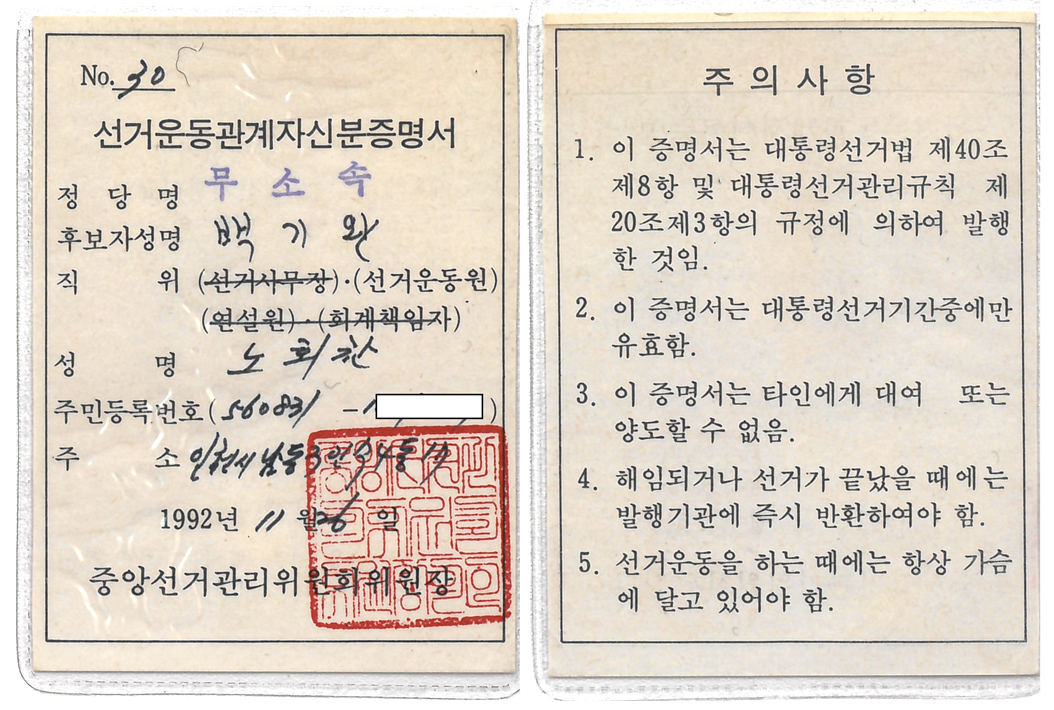 No. 30
선거운동관계자신분증명서
정 당 명 무 소 속
후보자성명 백 기 완
직 위 (선거사무장)·(선거운동원)
(연설원)·(회계책임자)
성 명 노 회 찬
주민등록번호 (560831 - 1 )
주 소 인천시 남동구
1992년 11 월 26 일
중앙선거관리위원회위원장
주 의 사 항
1. 이 증명서는 대통령선거법 제40조
제8항 및 대통령선거관리규칙 제
20조제3항의 규정에 의하여 발행
한 것임.
2. 이 증명서는 대통령선거기간중에만
유효함.
3. 이 증명서는 타인에게 대여 또는
양도할 수 없음.
4. 해임되거나 선거가 끝났을 때에는
발행기관에 즉시 반환하여야 함.
5. 선거운동을 하는 때에는 항상 가슴
에 달고 있어야 함.